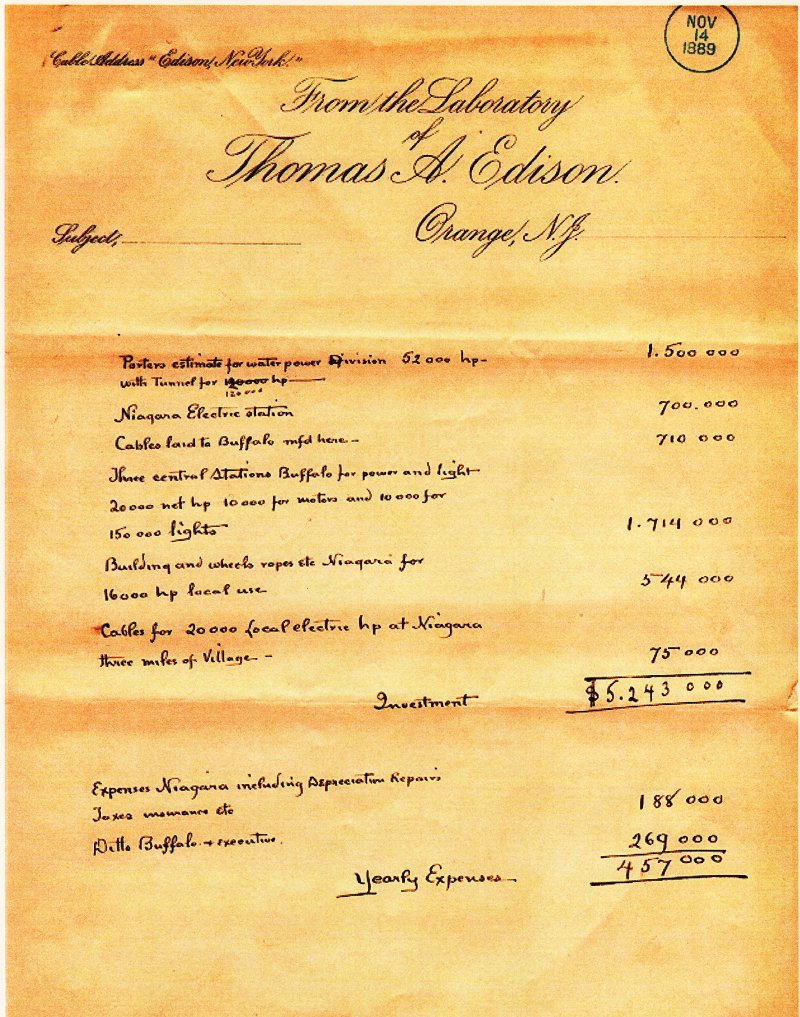 NOV
14
1889
Cable Address "Edison, New York."
From the Laboratory
of
Thomas A. Edison.
Orange, N.J.
Subject,
Porters estimate for water power Division 52000 hp - 1.500 000
with Tunnel for hp
120000
Niagara Electric station 700.000
Cables laid to Buffalo mfd here - 710 000
Three central Stations Buffalo for power and light
20000 net hp 10000 for motors and 10000 for
150 000 lights 1.714 000
Building and wheels ropes etc Niagara for
16000 hp local use 544 000
Cables for 20000 Local electric hp at Niagara
three miles of Village - 75 000
Investment $5.243 000
Expenses Niagara including Depreciation Repairs
Taxes insurance etc 188 000
Ditto Buffalo + executive. 269 000
Yearly Expenses 457 000